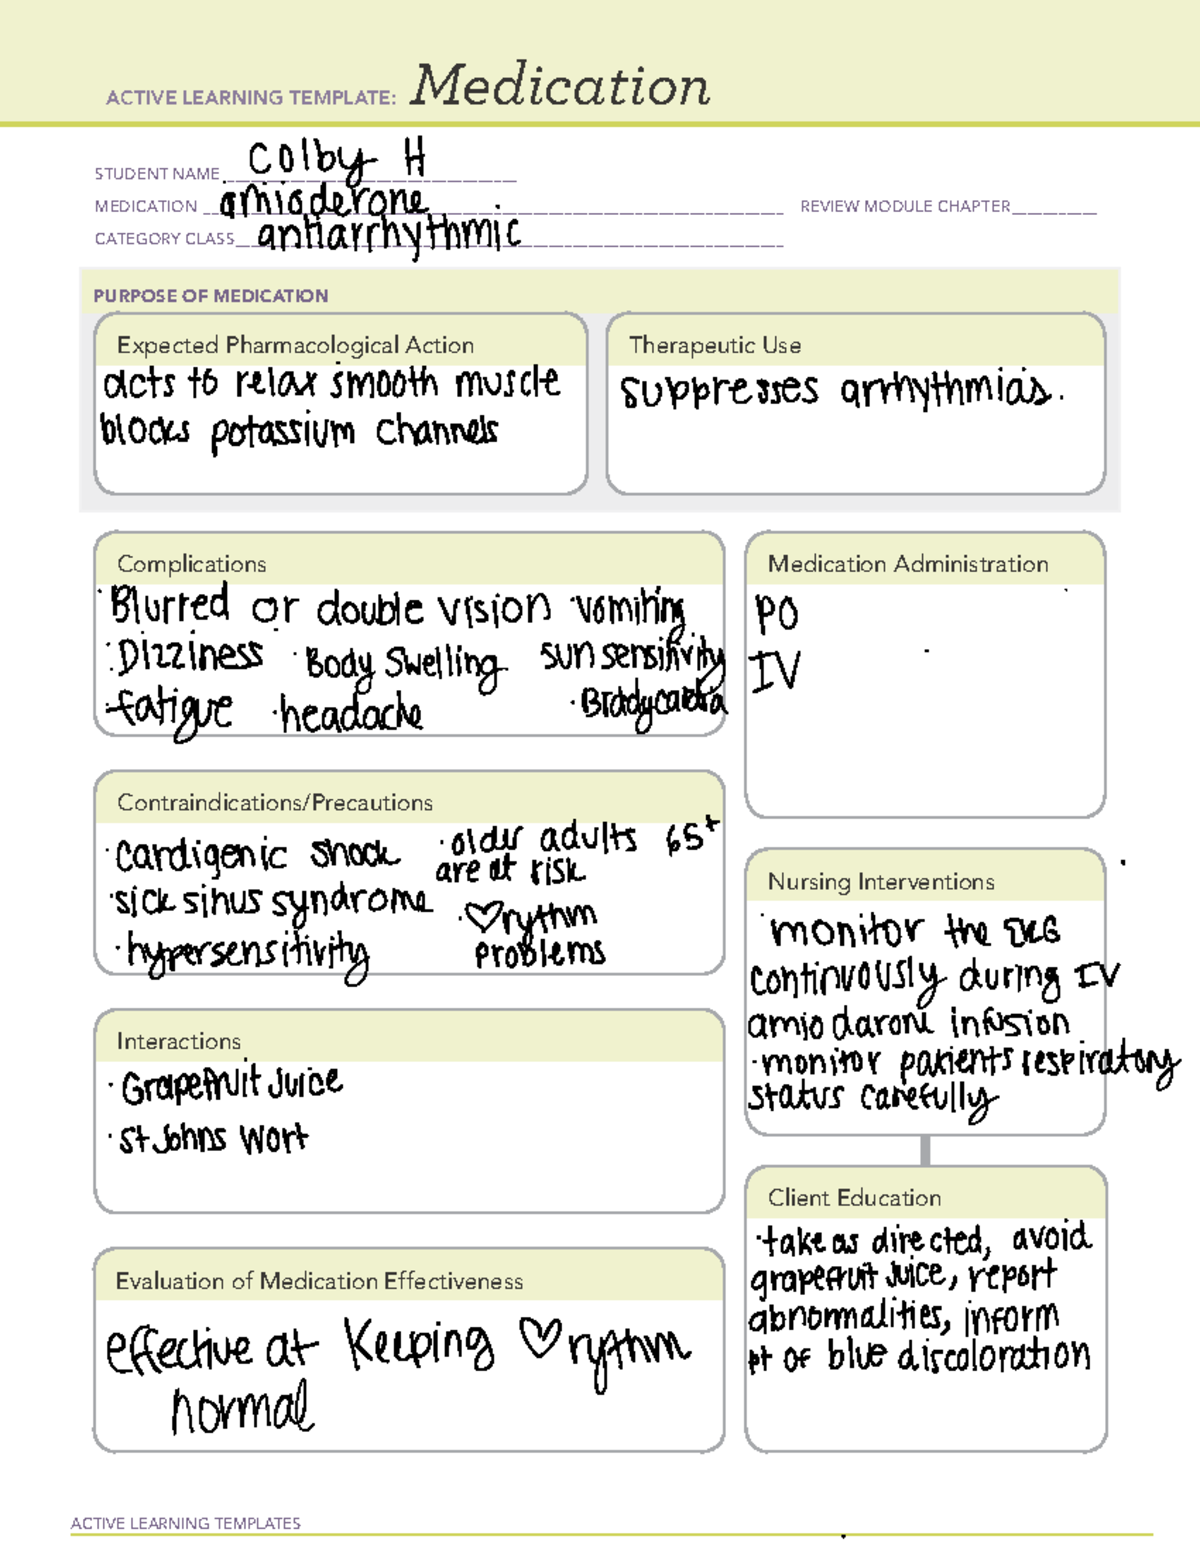 ACTIVE LEARNING TEMPLATE: Medication
STUDENT NAME Colby H
MEDICATION amioderone REVIEW MODULE CHAPTER
CATEGORY CLASS antiarrhythmic
PURPOSE OF MEDICATION
Expected Pharmacological Action
acts to relax smooth muscle
blocks potassium channels
Therapeutic Use
suppresses arrhythmias.
Complications
·Blurred or double vision ·vomiting
·Dizziness ·Body Swelling sun sensitivity
·fatigue ·headache ·Bradycardia
Medication Administration
PO
IV
Contraindications/Precautions
·Cardigenic shock
·sick sinus syndrome
·hypersensitivity
·older adults 65+
are at risk
·♡rythm
problems
Nursing Interventions
·monitor the EKG
continuously during IV
amiodarone infusion
·monitor patients respiratory
status carefully
Interactions
·Grapefruit Juice
·St Johns Wort
Client Education
·take as directed, avoid
grapefruit juice, report
abnormalities, inform
pt of blue discoloration
Evaluation of Medication Effectiveness
effective at keeping ♡rythm
normal
ACTIVE LEARNING TEMPLATES